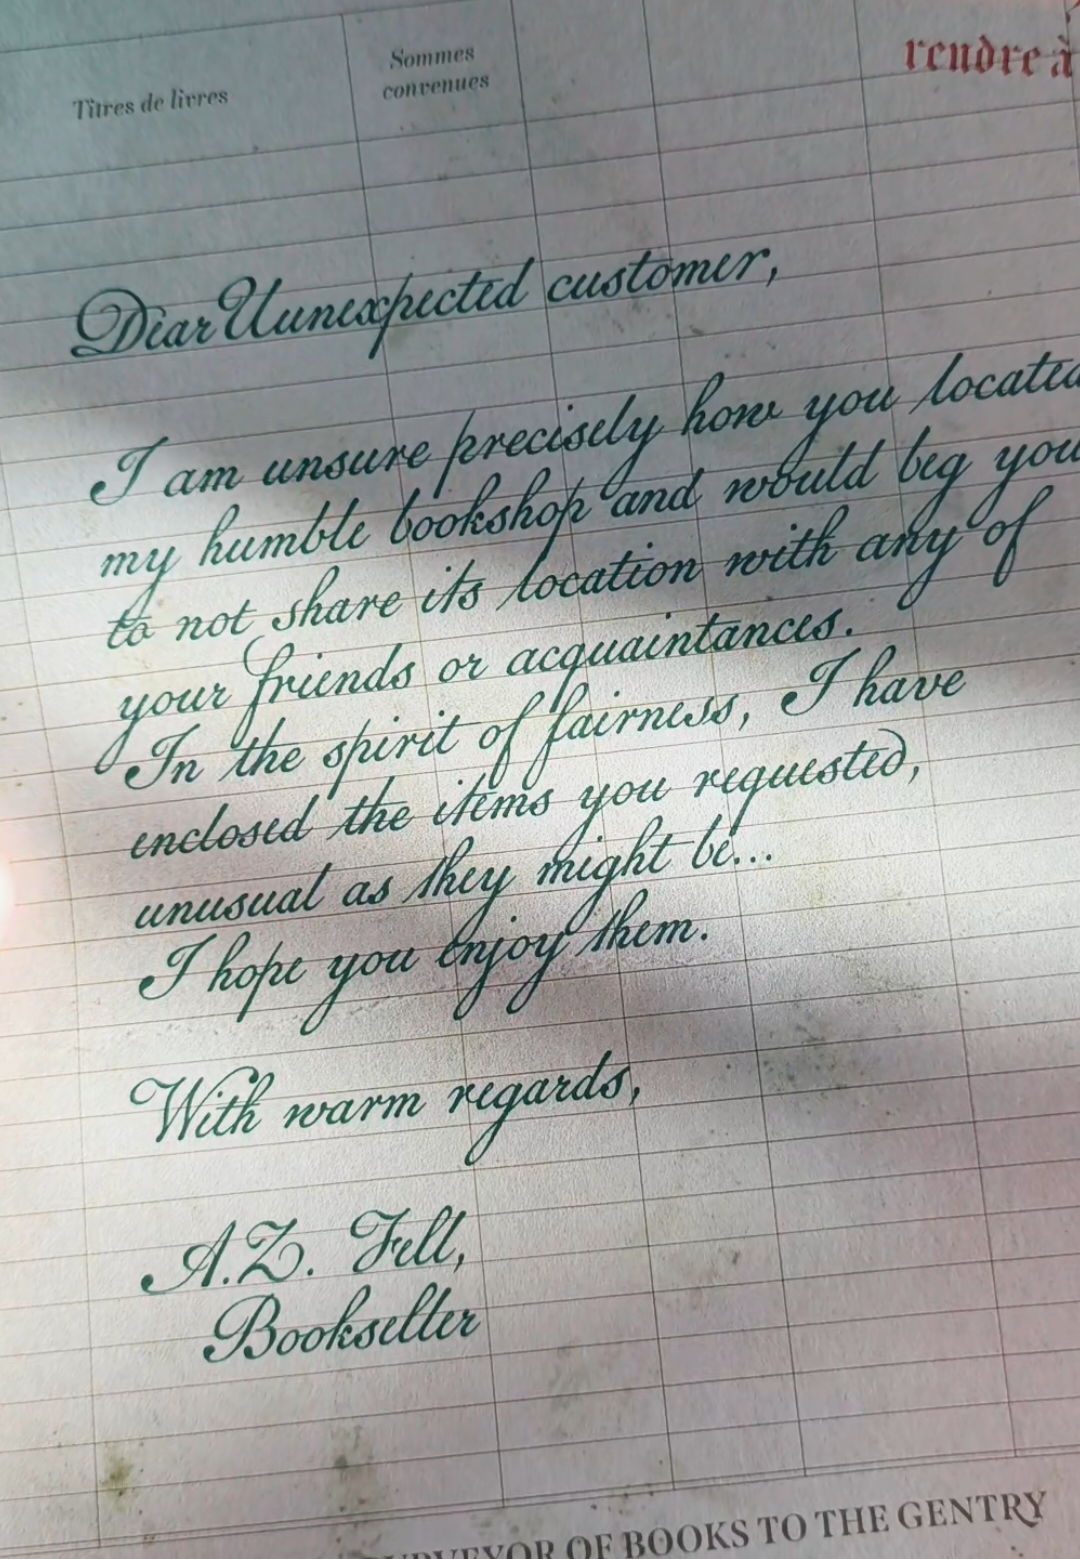 Titres de livres
Sommes
convenues
rendre à
Dear Uunexpected customer,
I am unsure precisely how you located
my humble bookshop and would beg you
to not share its location with any of
your friends or acquaintances.
In the spirit of fairness, I have
enclosed the items you requested,
unusual as they might be...
I hope you enjoy them.
With warm regards,
A.Z. Fell,
Bookseller
OF BOOKS TO THE GENTRY